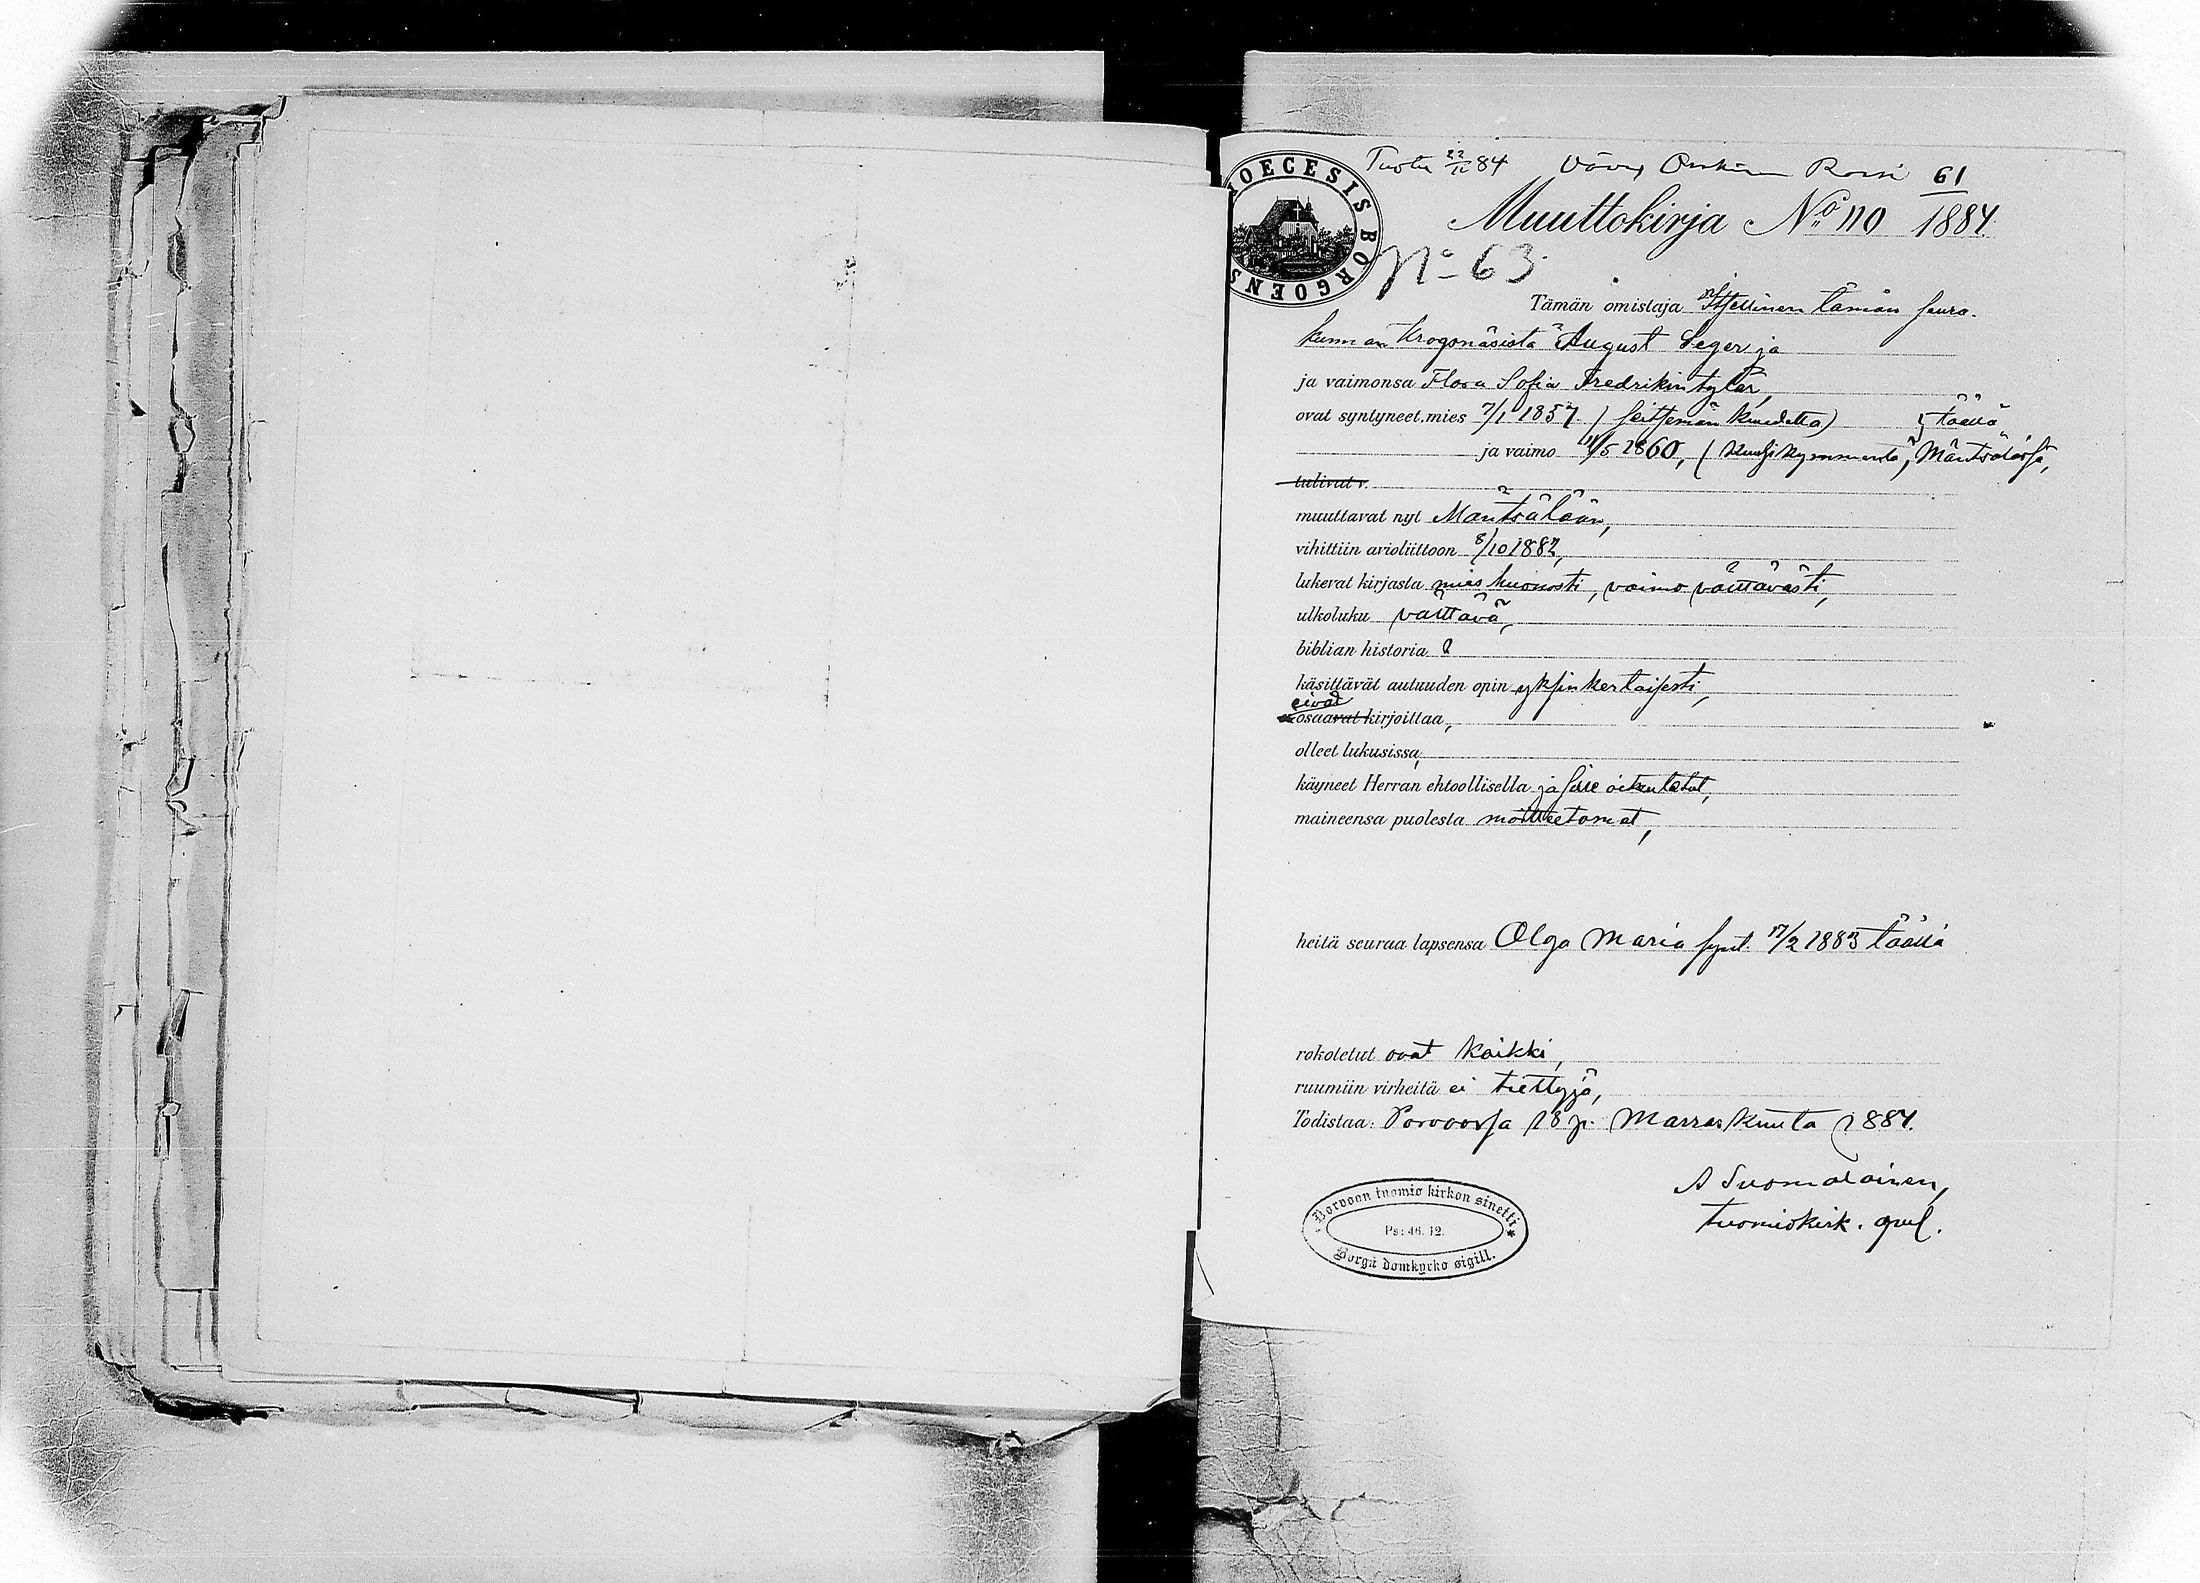 Tuotu 22/11 84
61
Muuttokirja No 110 1884.
No 63.
DIOECESIS BORGOENSIS
Tämän omistaja Itsellinen tämän seura-
kunnan Krogsnäsistä August Seger ja
ja vaimonsa Flora Sofia Fredrikin tytär,
ovat syntyneet, mies 7/1 1857 (seitsemän kuudetta) täällä
ja vaimo 11/5 1860, (kuusikymmentä, Mäntsälässä,
tulivat v.
muuttavat nyt Mäntsälään,
vihittiin avioliittoon 8/10 1882,
lukevat kirjasta mies huonosti, vaimo välttävästi,
ulkoluku välttävä,
biblian historia
käsittävät autuuden opin yksinkertaisesti,
eivät
osaavat kirjoittaa,
olleet lukusissa,
käyneet Herran ehtoollisella ja sille oikeutetut,
maineensa puolesta moitteetomat,
heitä seuraa lapsensa Olga Maria synt. 17/2 1883 täällä
rokotetut ovat kaikki,
ruumiin virheitä ei tiettyjä,
Todistaa: Porvoossa 18 p. Marraskuuta 1884.
A Suomalainen,
tuomiokirk. apul.
Porvoon tuomio kirkon sinetti
Ps: 46. 12.
Borgå domkyrko sigill.